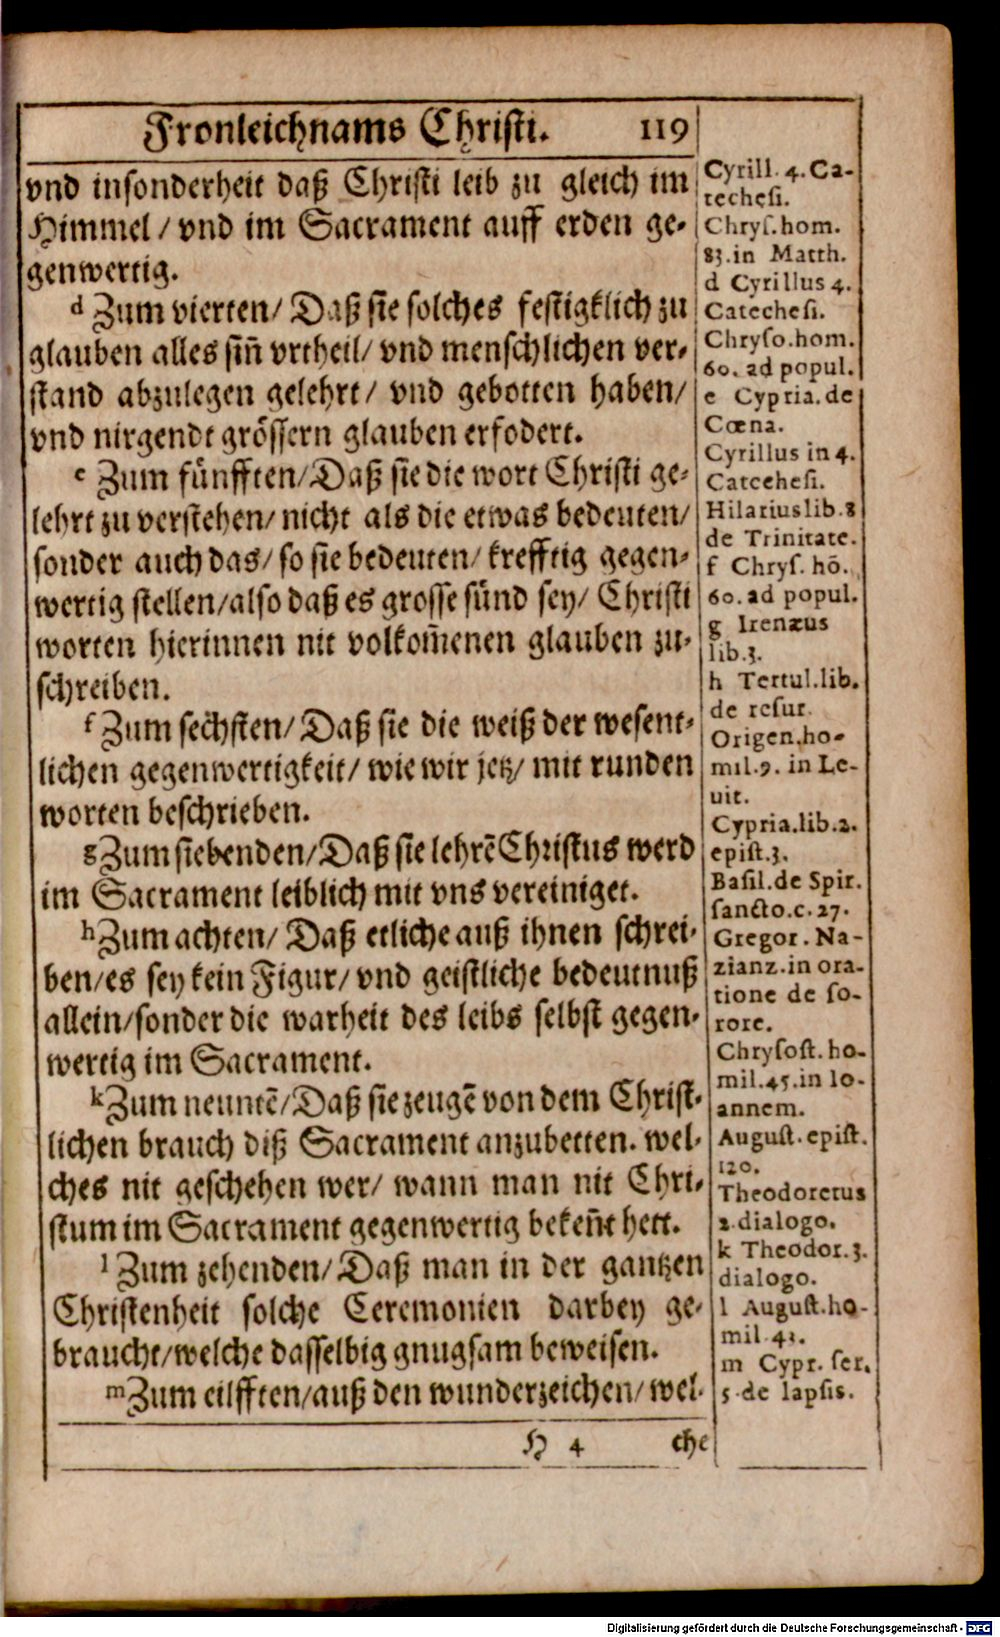 Fronleichnams Christi. 119
vnd insonderheit daß Christi leib zu gleich im
Himmel / vnd im Sacrament auff erden ge-
genwertig.
d Zum vierten/ Daß sie solches festigklich zu
glauben alles siñ vrtheil/ vnd menschlichen ver-
stand abzulegen gelehrt/ vnd gebotten haben/
vnd nirgendt grössern glauben erfodert.
e Zum fünfften/Daß sie die wort Christi ge-
lehrt zu verstehen/ nicht als die etwas bedeuten/
sonder auch das/ so sie bedeuten/ krefftig gegen-
wertig stellen/also daß es grosse sünd sey/ Christi
worten hierinnen nit volkom̃enen glauben zu-
schreiben.
f Zum sechsten/ Daß sie die weiß der wesent-
lichen gegenwertigkeit/ wie wir jetz/ mit runden
worten beschrieben.
g Zum siebenden/Daß sie lehrẽ Christus werd
im Sacrament leiblich mit vns vereiniget.
h Zum achten/ Daß etliche auß ihnen schrei-
ben/es sey kein Figur/ vnd geistliche bedeutnuß
allein/sonder die warheit des leibs selbst gegen-
wertig im Sacrament.
k Zum neuntẽ/Daß sie zeugẽ von dem Christ-
lichen brauch diß Sacrament anzubetten. wel-
ches nit geschehen wer/ wann man nit Chri-
stum im Sacrament gegenwertig bekeñt hett.
l Zum zehenden/Daß man in der gantzen
Christenheit solche Ceremonien darbey ge-
braucht/welche dasselbig gnugsam beweisen.
m Zum eilfften/auß den wunderzeichen/ wel-
H 4 che
Cyrill. 4. Ca-
techesi.
Chrys. hom.
83. in Matth.
d Cyrillus 4.
Catechesi.
Chryso. hom.
60. ad popul.
e Cypria. de
Cœna.
Cyrillus in 4.
Catecehesi.
Hilarius lib. 8
de Trinitate.
f Chrys. hõ.
60. ad popul.
g Irenæus
lib. 3.
h Tertul. lib.
de resur.
Origen. ho-
mil. 9. in Le-
uit.
Cypria. lib. 2.
epist. 3.
Basil. de Spir.
sancto. c. 27.
Gregor. Na-
zianz. in ora-
tione de so-
rore.
Chrysost. ho-
mil. 45. in Io-
annem.
August. epist.
120.
Theodoretus
2. dialogo.
k Theodor. 3.
dialogo.
l August. ho-
mil. 41.
m Cypr. ser.
5. de lapsis.
Digitalisierung gefördert durch die Deutsche Forschungsgemeinschaft - DFG